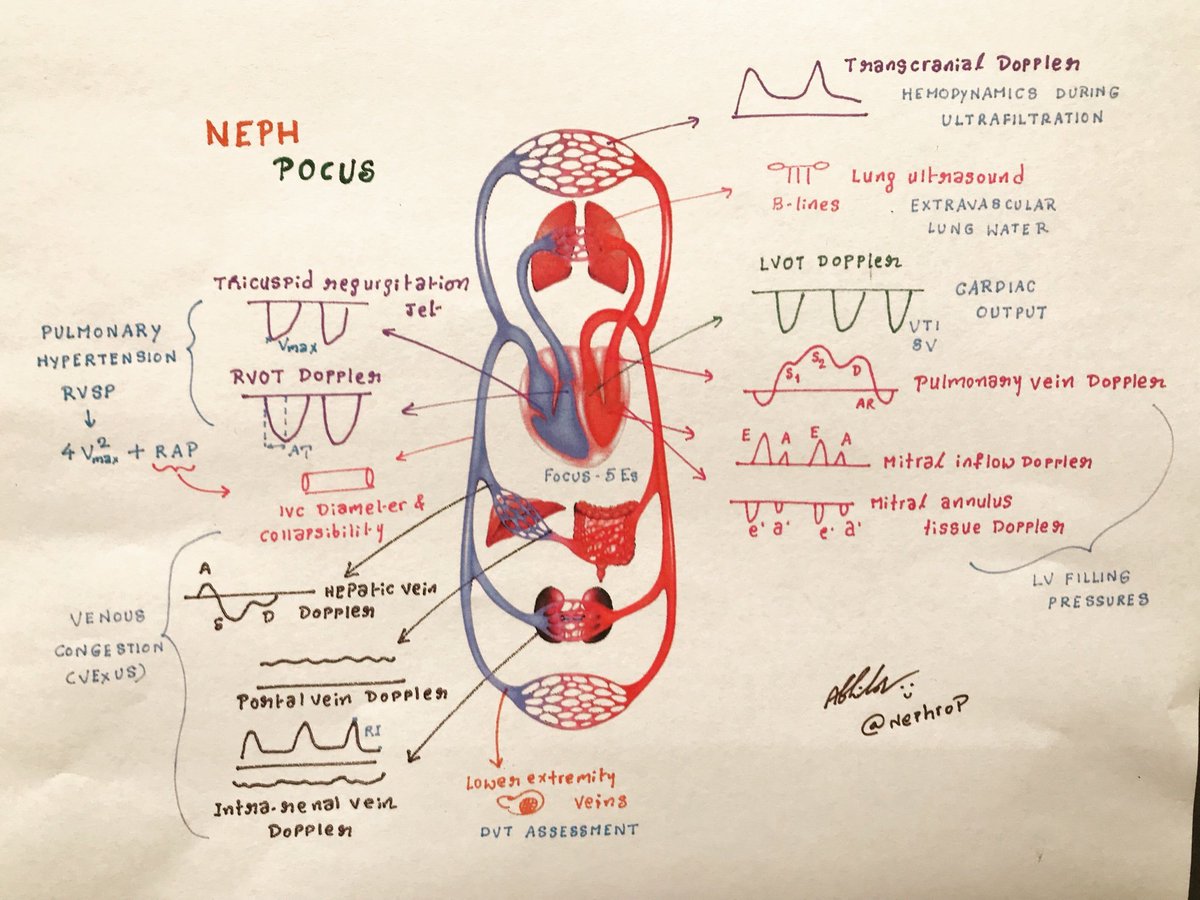 NEPH
POCUS
Transcranial Doppler
HEMODYNAMICS DURING
ULTRAFILTRATION
B-lines
Lung ultrasound
EXTRAVASCULAR
LUNG WATER
LVOT DOPPLER
CARDIAC
OUTPUT
VTI
SV
S1 S2 D
AR
Pulmonary vein Doppler
E A E A
Mitral inflow Doppler
e' a' e' a'
Mitral annulus
tissue Doppler
LV FILLING
PRESSURES
TRicuspid regurgitation
Jet
Vmax
PULMONARY
HYPERTENSION
RVSP
4 V²max + RAP
RVOT Doppler
AT
IVC Diameter &
collapsibility
FOCUS - 5 Es
VENOUS
CONGESTION
(VExUS)
A
S D
Hepatic vein
Doppler
Portal vein Doppler
RI
Intra-renal vein
Doppler
Lower extremity
veins
DVT ASSESSMENT
@NephroP